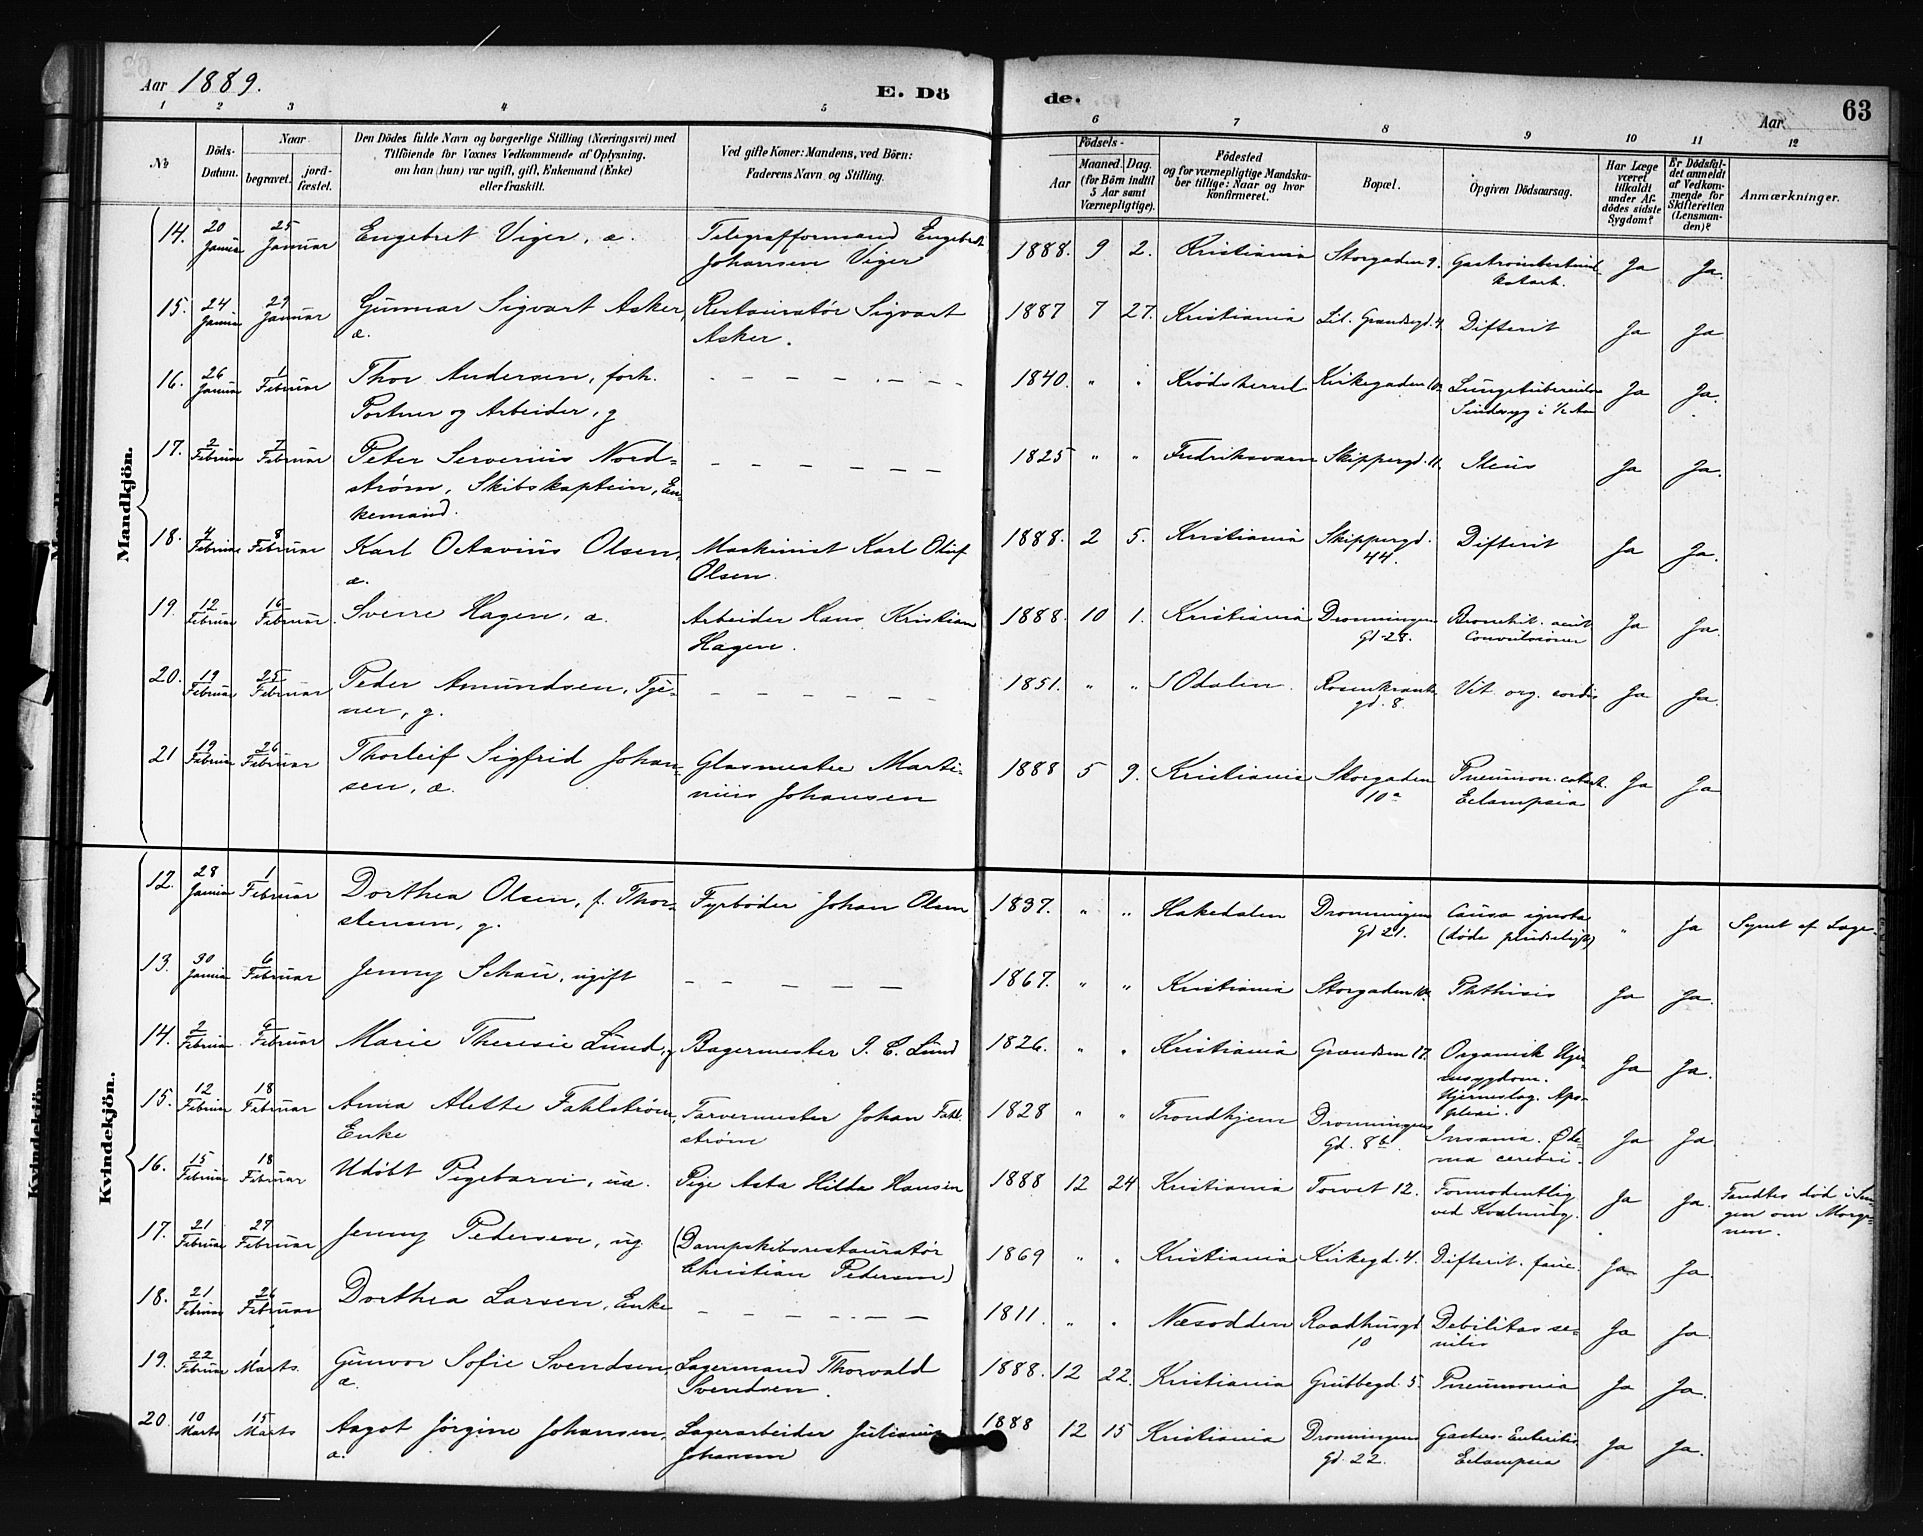 Aar 1889.
E. Dö
de.
Aar
63
1 2 3 4 5 6 7 8 9 10 11 12
№
Döds-Datum.
Naar
begravet.
jord-fæstet.
Den Dödes fulde Navn og borgerlige Stilling (Næringsvei) med
Tilföiende for Voxnes Vedkommende af Oplysning,
om han (hun) var ugift, gift, Enkemand (Enke)
eller fraskilt.
Ved gifte Koner: Mandens, ved Börn:
Faderens Navn og Stilling.
Födsels-
Aar
Maaned. Dag.
(for Börn indtil
5 Aar samt
Værnepligtige).
Födested
og for værnepligtige Mandska-
ber tillige: Naar og hvor
konfirmeret.
Bopæl.
Opgiven Dödsaarsag.
Har Læge
været
tilkaldt
under Af-
dödes sidste
Sygdom?
Er Dödsfal-
det anmeldt
af Vedkom-
mende for
Skifteretten
(Lensman-
den)?
Anmærkninger.
Mandkjön.
14. 20 Januar 25 Januar Engebret Viger, æ. Telegrafformand Engebret Johansen Viger 1888. 9 2. Kristiania Storgaden 9. Ja Ja.
15. 24 Januar 29 Januar Gunnar Sigvart Asker, æ. Restauratør Sigvart Asker. 1887 7 27. Kristiania Lil. Grændsegd. 4. Difterit Ja Ja.
16. 26 Januar 1 Februar Thor Andersen, forh. Portner og Arbeider, g 1840. " " Krødsherred Kirkegaden Ja Ja.
17. 2 Februar 7 Februar Peter Severinus Nordstrøm, Skibskaptein, Enkemand. 1825 " " Fredriksværn Skippergd. 11. Ileus Ja Ja.
18. 4 Februar 8 Februar Karl Octavius Olsen, æ. Maskinist Karl Oluf Olsen. 1888. 2 5. Kristiania Skippergd. 44. Difterit Ja Ja.
19. 12 Februar 16 Februar Sverre Hagen, æ. Arbeider Hans Kristian Hagen. 1888. 10 1. Kristiania Dronningens Gd. 28. Bronchit. acut. Convulsioner Ja Ja.
20. 19 Februar 25 Februar Peder Amundsen, Tjener, g. 1851. " " S Odalen. Rosenkrantz gd. 8. Vit. org. cordis Ja Ja.
21 19 Februar 26 Februar Thorleif Sigfrid Johansen, æ. Glasmester Martinius Johansen 1888 5 9. Kristiania Storgaden 10 a Pneumon. catarrh. Eclampsia Ja Ja
Kvindekjön.
12. 28 Januar 1 Februar Dorthea Olsen, f. Thorstensen, g. Fyrbøder Johan Olsen 1837. " " Hakedalen Dronningens Gd 21. Causa ignota (døde pludseligt) " Ja Synet af Læge.
13. 30 Januar 6 Februar Jenny Schau, ugift 1867. " " Kristiania Storgaden Phthisis Ja Ja.
14. 2 Februar 9 Februar Marie Theresie Lund, g Bagermester P. C. Lund 1826. " " Kristiania Grændsen 17. Organisk Hjertesygdom. Hjerneslag. Apoplexi. Ja Ja.
15. 12 Februar 18 Februar Anna Alette Fahlstrøm, Enke Farvermester Johan Fahlstrøm 1828 " " Trondhjem Dronningens Gd. 8 b. Insania. Ødema cerebri. Ja Ja
16. 15 Februar 18 Februar Udøbt Pigebarn, uæ. Pige Asta Hilda Hansen 1888 12 24 Kristiania Torvet 12. Formodentlig ved Kvælning. Ja Ja. Fandtes død i Sengen om Morgenen.
17. 21 Februar 27 Februar Jenny Pedersen, ug. (Dampskibsrestauratør Christian Pedersen) 1869 " " Kristiania Kirkegd. 4. Difterit. Ja Ja.
18. 21 Februar 26 Februar Dorthea Larsen, Enke 1811. " " Næsodden Raadhusgd 10 Debilitas senilis Ja Ja.
19. 22 Februar 1 Marts. Gunvor Sofie Svendsen, æ. Lagermand Thorvald Svendsen. 1888. 12 22. Kristiania Grubbegd. 5. Pneumonia Ja Ja.
20. 10 Marts 15 Marts Aagot Jørgine Johansen, æ. Lagerarbeider Julianus Johansen 1888 12 15 Kristiania Dronningens Gd. 22. Gastro-Enteritis Eclampsia Ja Ja.